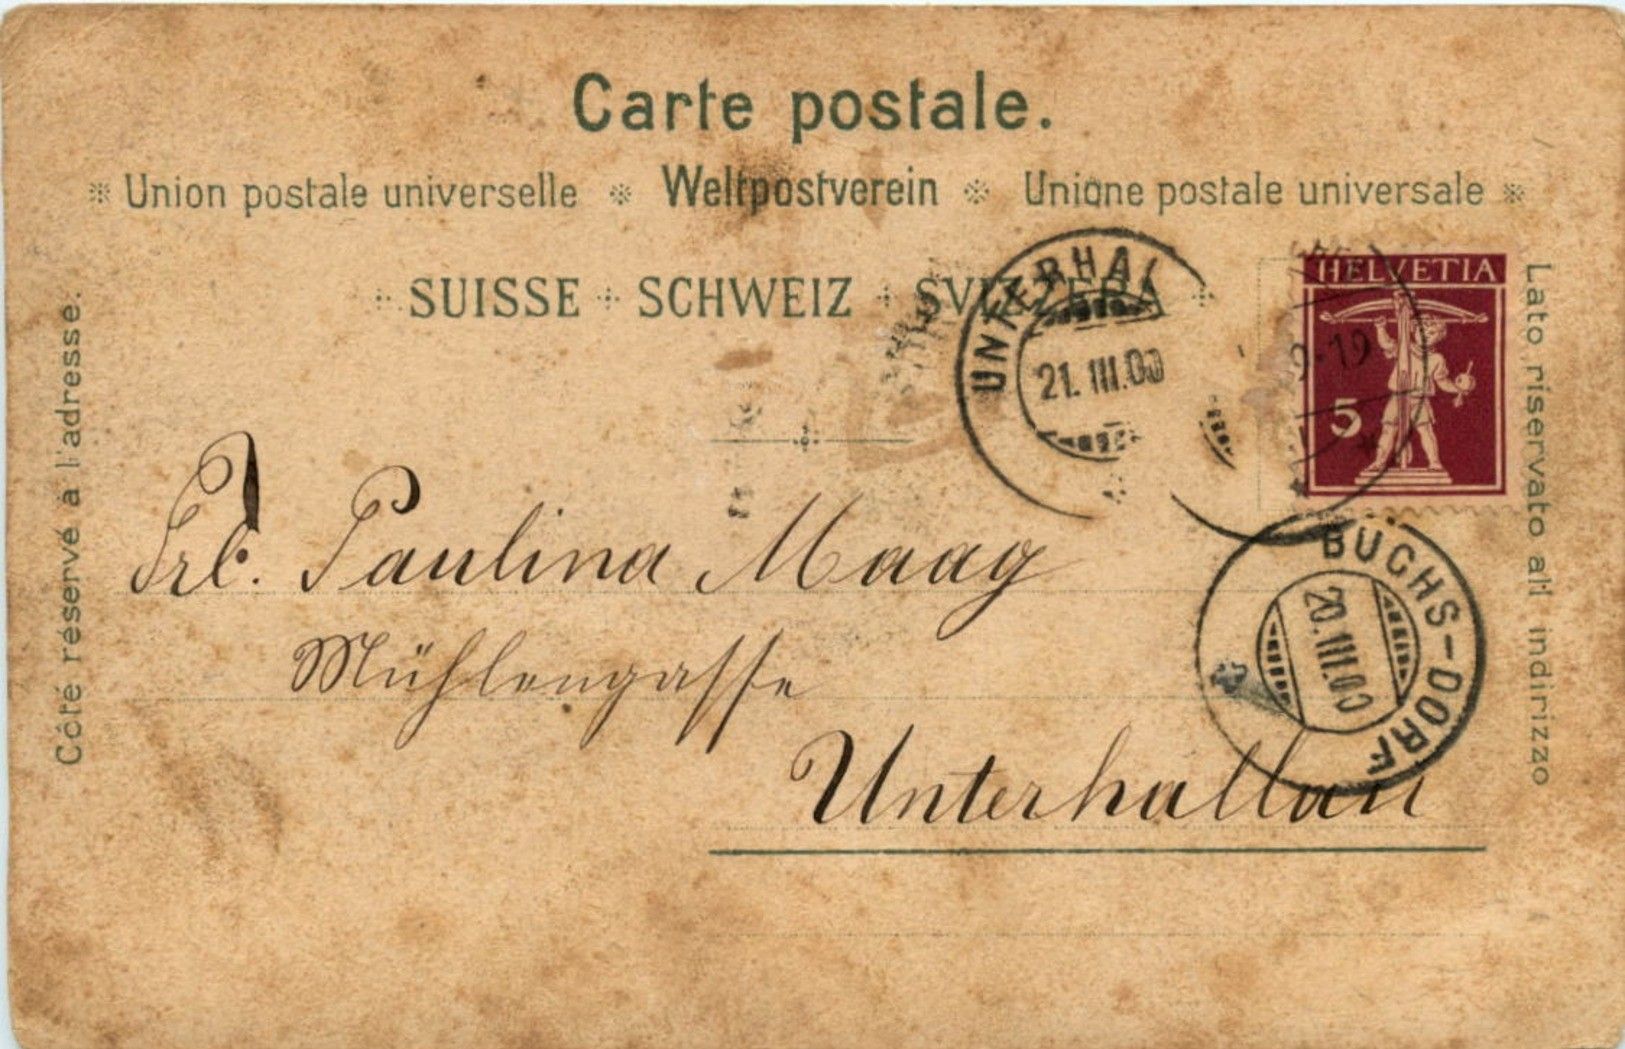 Carte postale.
Union postale universelle Weltpostverein Unione postale universale
SUISSE SCHWEIZ SVIZZERA
Côté réservé à l'adresse.
Lato riservato all indirizzo
HELVETIA
5
9-19
UNTERHAL
21.III.00
BUCHS-DORF
20.III.00
Frl. Paulina Maag
Mühlengasse
Unterhallau